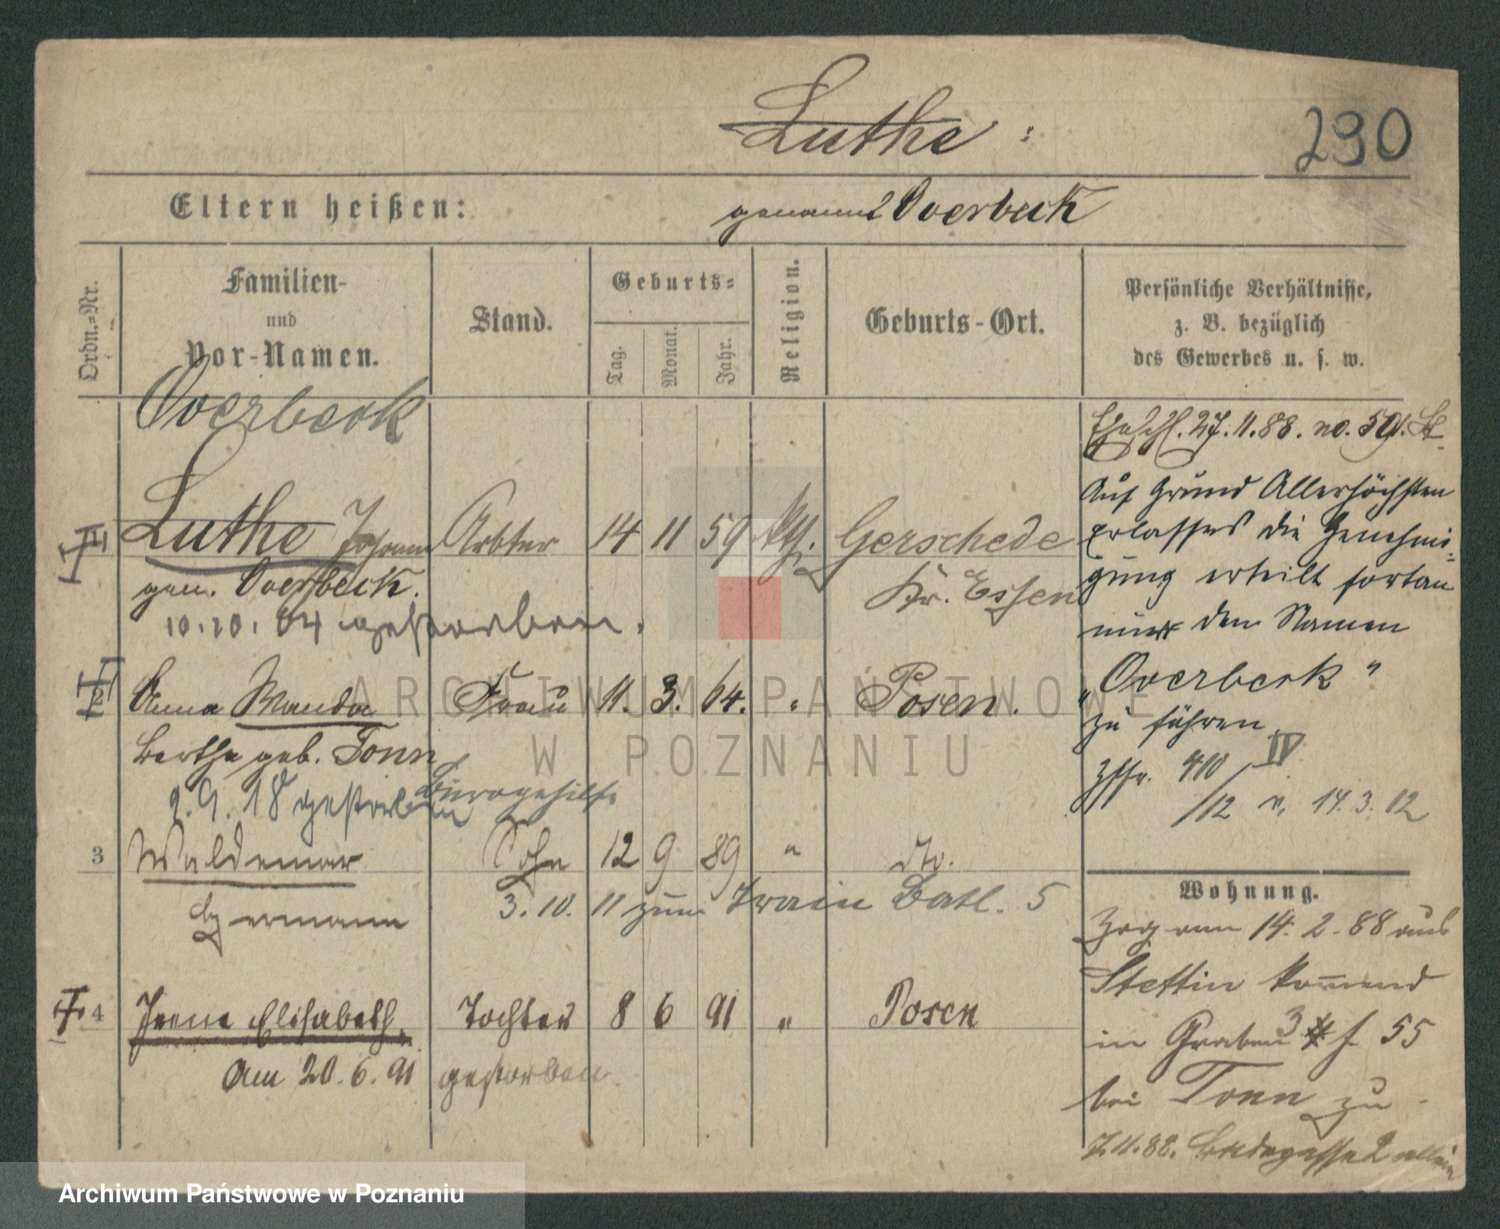 Luthe :
290
Eltern heißen:
genannt Overbeck
Ordn.-Nr.
Familien-
und
Vor-Namen.
Stand.
Geburts-
Tag.
Monat.
Jahr.
Religion.
Geburts-Ort.
Persönliche Verhältnisse,
z. B. bezüglich
des Gewerbes u. s. w.
Overbeck
Luthe Johann Arbter 14 11 59 kth. Gerschede
Kr. Essen
gen. Overbeck.
10.10.04 gestorben.
2 Anna Wanda Frau 11. 3. 64. " Posen.
Bertha geb. Tonn
9. 9. 18 gestorben
Bürogehilfe
3 Waldemar Sohn 12 9 89 " dto.
Hermann
3. 10. 11 zum Train Batl. 5
4 Irene Elisabeth Tochter 8 6 91 " Posen
Am 20. 6. 91 gestorben.
Eheschl. 27.11.88. no. 591. St.
Auf Grund Allerhöchsten
Erlasses die Genehmi-
gung erteilt fortan
nur den Namen
„Overbeck"
zu führen
410 IV
/12 v. 14. 3. 12
Wohnung.
Zog am 14. 2. 88 aus
Stettin kommend
in Graben 3 f. 55
bei Tonn zu
7.11.88. Badegasse 2 allein
ARCHIWUM PAŃSTWOWE
W POZNANIU
Archiwum Państwowe w Poznaniu